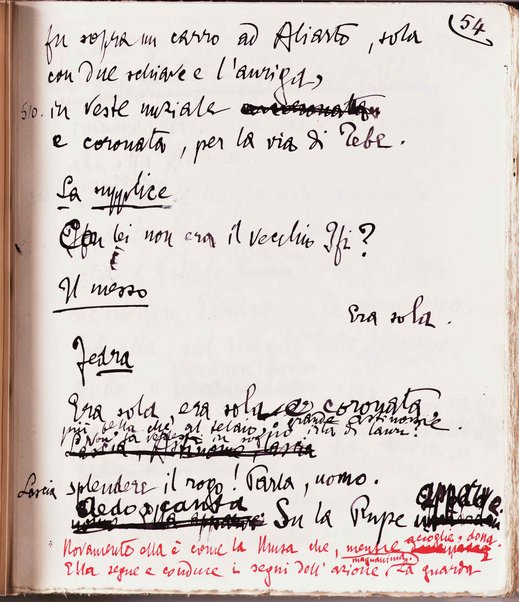 54
fu sopra un carro ad Aliarto, sola
con due schiave e l'auriga,
510. in veste nuziale
e coronata, per la via di Tebe.
La supplice
Con lei non era il vecchio Ifi?
Il messo
Era sola.
Fedra
Era sola, era sola e coronata.
più bella che al telaio, o grande Astinome.
Non la vedesti in sogno irta di lauri?
Lascia splendere il rogo! Parla, uomo.
Su la Rupe appare.
Novamente ella è come la Musa che, mentre accoglie, dona.
Ella segue e conduce i segni dell'azione. La guarda
magnanima